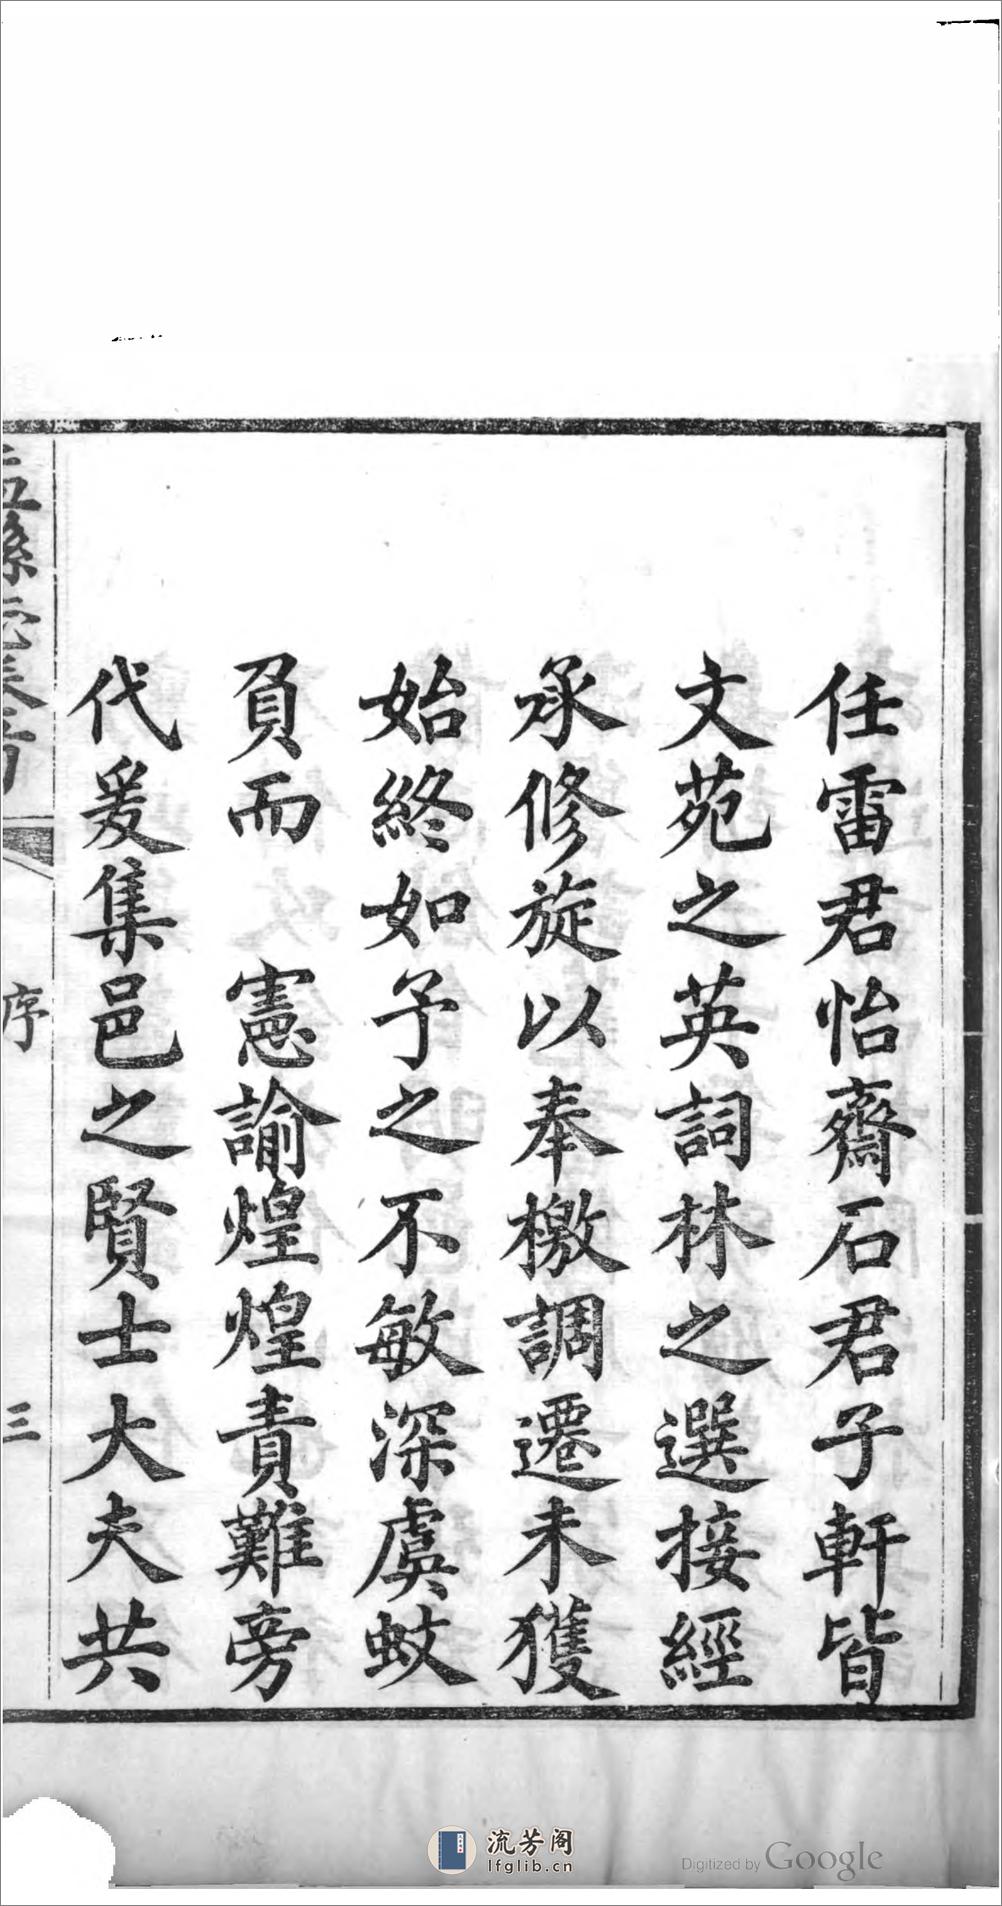 任雷君怡齋石君子軒皆
文苑之英詞林之選接經
承修旋以奉檄調遷未獲
始終如予之不敏深虞蚊
負而　憲諭煌煌責難旁
代爰集邑之賢士大夫共
序
三
流芳阁
lfglib.cn
Digitized by Google